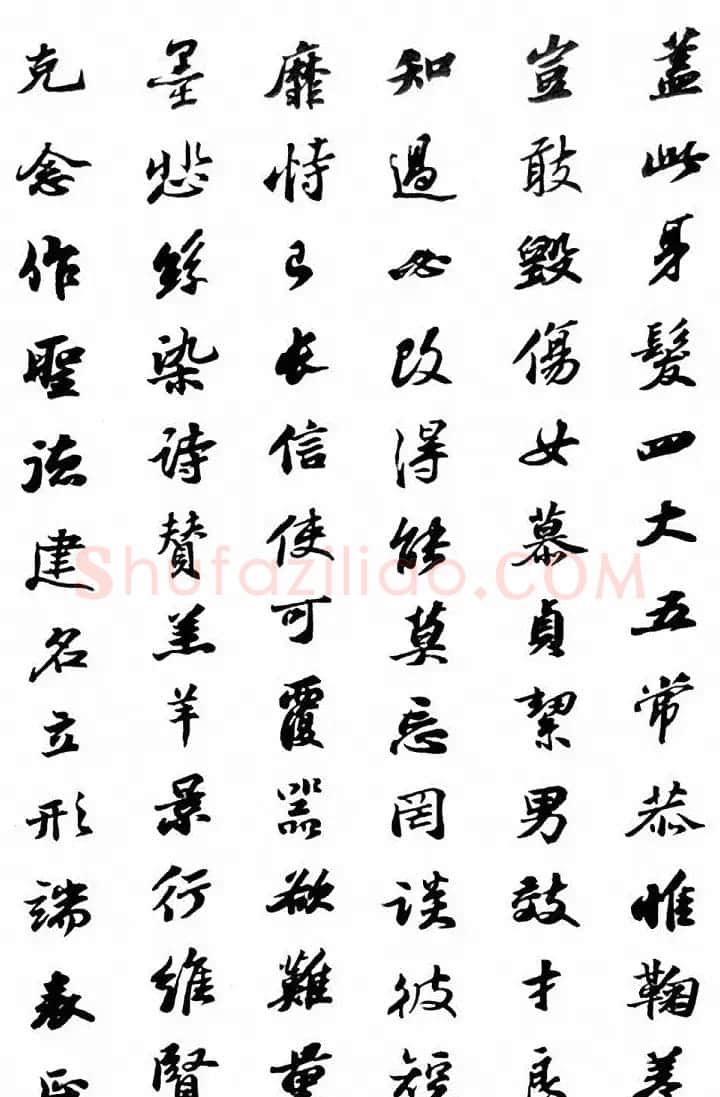 蓋此身髮四大五常恭惟鞠養
豈敢毀傷女慕貞絜男效才良
知過必改得能莫忘罔談彼短
靡恃己長信使可覆器欲難量
墨悲絲染詩贊羔羊景行維賢
克念作聖德建名立形端表正
Shufaziliao.COM